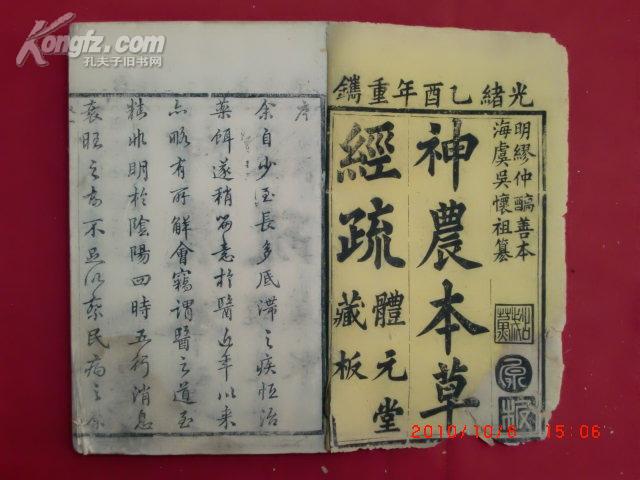 Kongfz.com
孔夫子旧书网
光緒乙酉年重鐫
明繆仲醕善本
海虞吳懷祖纂
神農本草
經疏
體元堂
藏板
序
余自少至長多底滯之疾恒治
藥餌遂稍留意於醫近年以來
亦略有所解會竊謂醫之道至
精非明於陰陽四時五行消息
衰旺之
不足以
民病之
2010/10/6 15:06